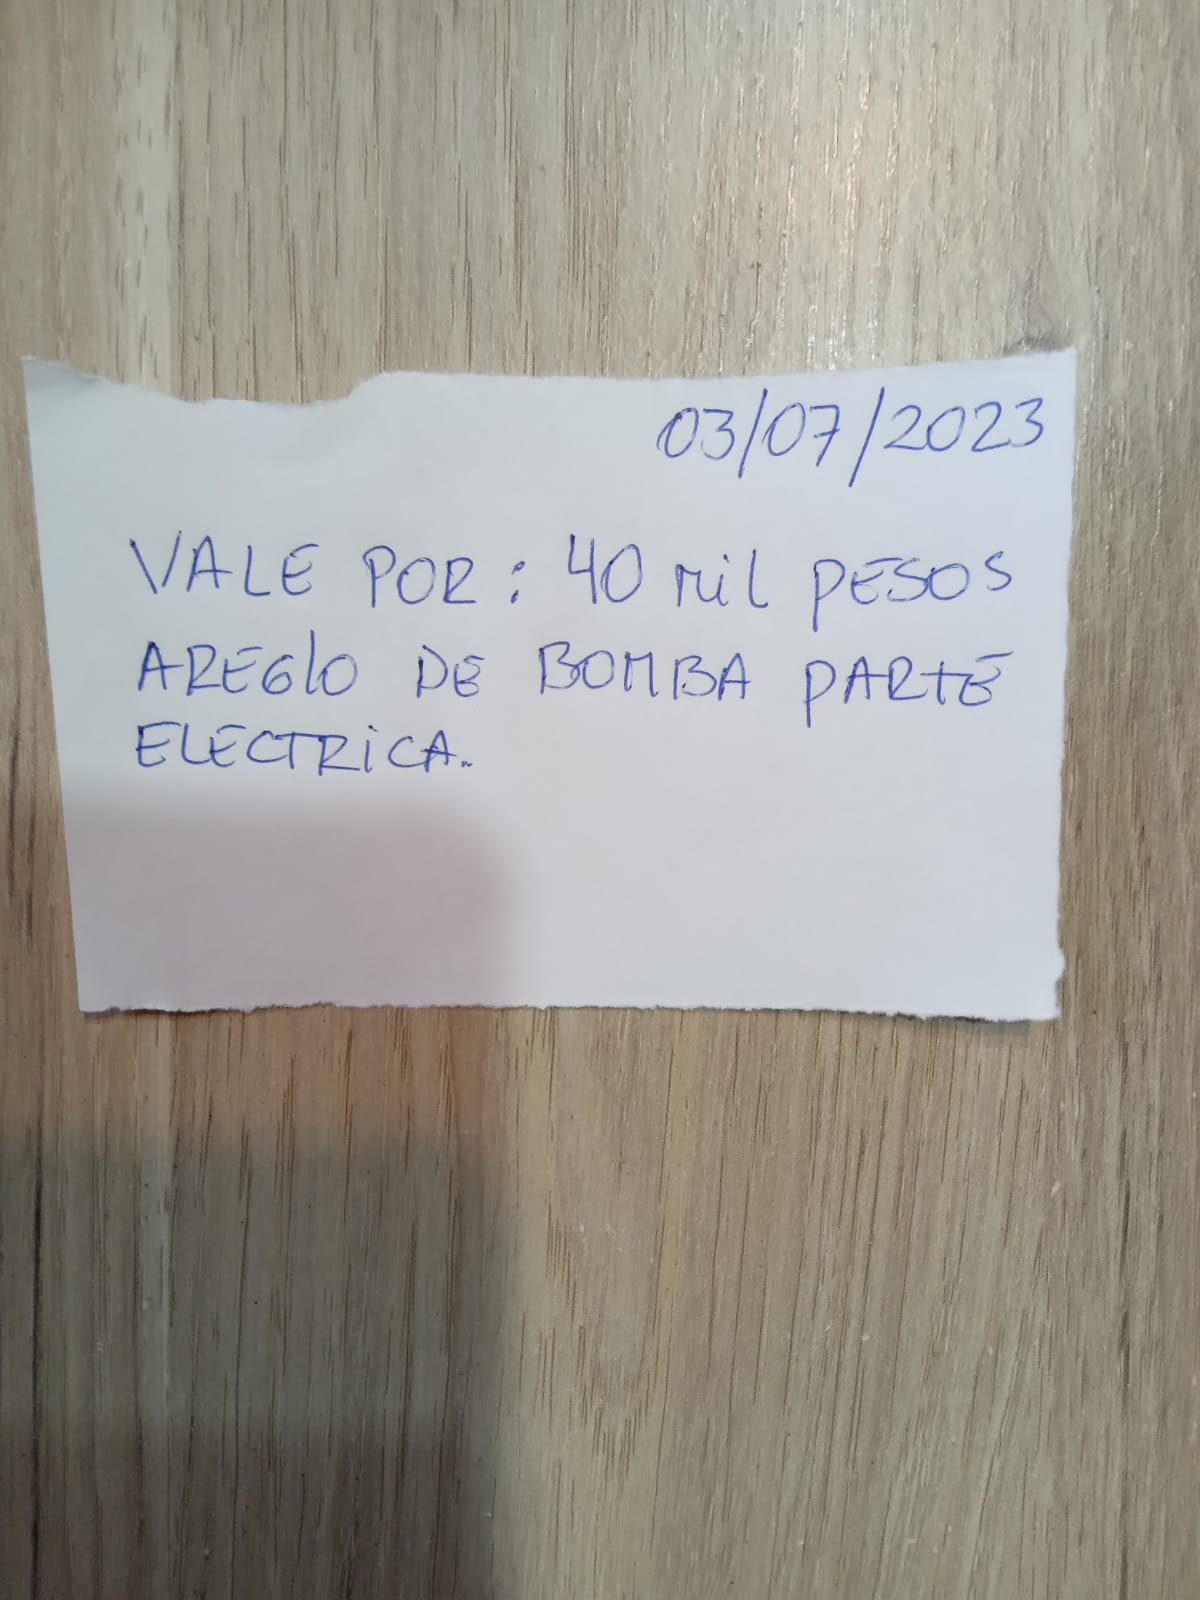 03/07/2023
VALE POR: 40 mil PESOS
AREGlO DE BOMBA PARTE
ELECTRiCA.